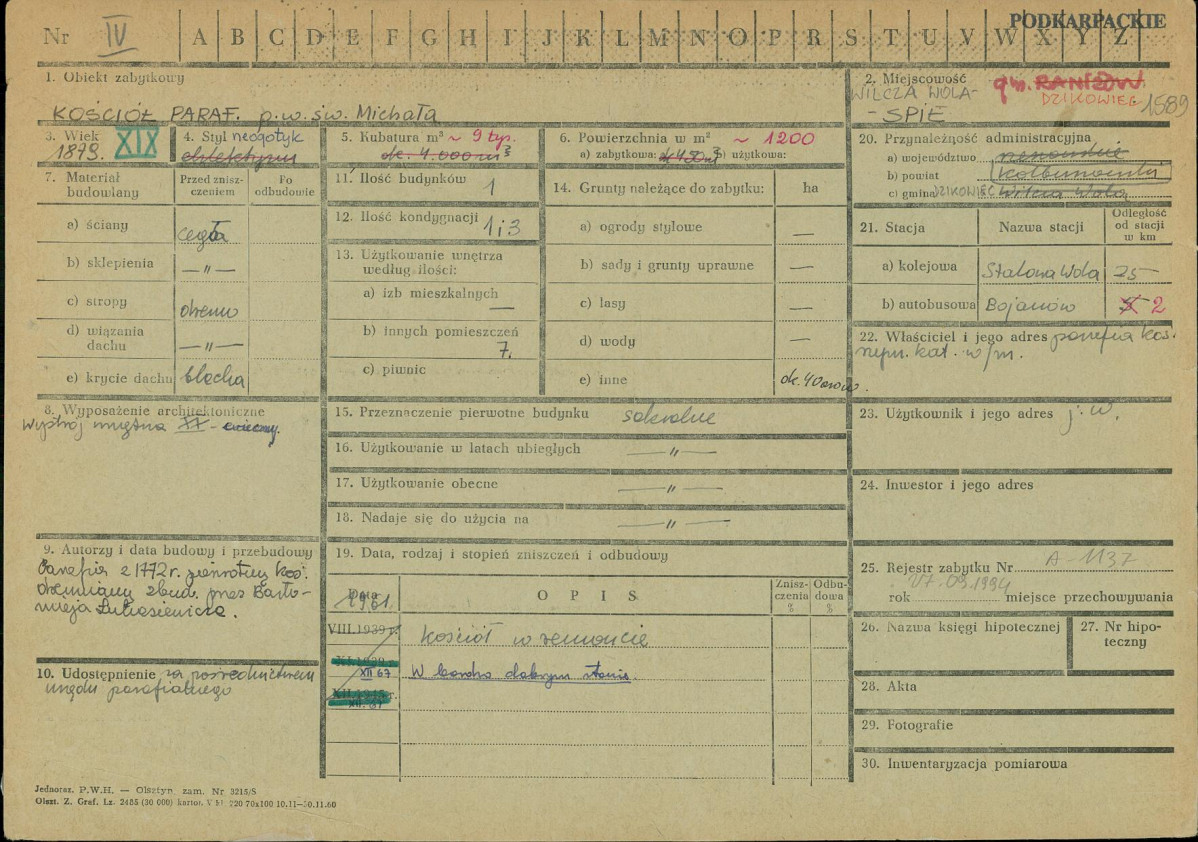 PODKARPACKIE
Nr IV A B C D E F G H I J K L M N O P R S T U V W X Y Z
1. Obiekt zabytkowy
KOŚCIÓŁ PARAF. p.w. św. Michała
2. Miejscowość gm. RANIŻÓW
WILCZA WOLA- DZIKOWIEC 1589
- SPIE
3. Wiek XIX
1879.
4. Styl neogotyk
5. Kubatura m³ ~ 9 tys.
ok. 4.000 m³
6. Powierzchnia w m² ~ 1200
a) zabytkowa: b) użytkowa:
7. Materiał budowlany
Przed zniszczeniem
Po odbudowie
a) ściany cegła
b) sklepienia — „ —
c) stropy drewno
d) wiązania dachu — „ —
e) krycie dachu blacha
8. Wyposażenie architektoniczne
wystrój wnętrza XX -
9. Autorzy i data budowy i przebudowy
Parafia z 1772 r. pierwotny koś.
drewniany zbud. przez Bartło-
mieja Łukasiewicza.
10. Udostępnienie za pośrednictwem
urzędu parafialnego
11. Ilość budynków 1
12. Ilość kondygnacji 1 i 3
13. Użytkowanie wnętrza
według ilości:
a) izb mieszkalnych —
b) innych pomieszczeń
7.
c) piwnic
14. Grunty należące do zabytku: ha
a) ogrody stylowe —
b) sady i grunty uprawne —
c) lasy —
d) wody —
e) inne ok. 40 arów.
15. Przeznaczenie pierwotne budynku sakralne
16. Użytkowanie w latach ubiegłych — „ —
17. Użytkowanie obecne — „ —
18. Nadaje się do użycia na — „ —
19. Data, rodzaj i stopień zniszczeń i odbudowy
Data
O P I S
Zniszczenia %
Odbudowa %
1961.
VIII.1939 r. Kościół w remoncie
XI.1939 r.
XII 67 W bardzo dobrym stanie.
XII.1945 r.
XII. 67
20. Przynależność administracyjna
a) województwo rzeszowskie
b) powiat kolbuszowski
c) gmina DZIKOWIEC Wilcza Wola
21. Stacja
Nazwa stacji
Odległość od stacji w km
a) kolejowa Stalowa Wola 25
b) autobusowa Bojanów 2
22. Właściciel i jego adres parafia koś.
rzym. kat. w/m.
23. Użytkownik i jego adres j. w.
24. Inwestor i jego adres
25. Rejestr zabytku Nr A-1137
27.09.1994
rok miejsce przechowywania
26. Nazwa księgi hipotecznej
27. Nr hipoteczny
28. Akta
29. Fotografie
30. Inwentaryzacja pomiarowa
Jednoraz. P.W.H. — Olsztyn zam. Nr 3215/S
Olszt. Z. Graf. Lz. 2485 (30 000) karton. V kl. 220 70x100 10.11—30.11.60